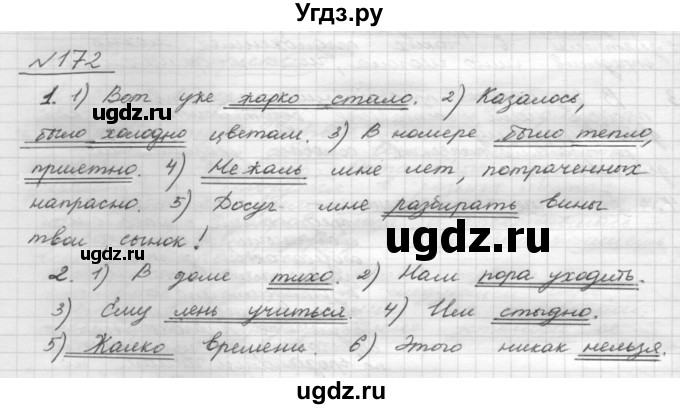 Угдз.ру
№172
1. 1) Вот уже жарко стало. 2) Казалось,
было холодно цветам. 3) В номере было тепло,
приятно. 4) Не жаль мне лет, потраченных
напрасно. 5) Досуг мне разбирать вины
твои сынок!
2. 1) В доме тихо. 2) Нам пора уходить.
3) Ему лень учиться. 4) Им стыдно.
5) Жалко времени. 6) Этого никак нельзя.
ugdz.ru
ugdz.ru
ugdz.ru
ugdz.ru
ugdz.ru
ugdz.ru